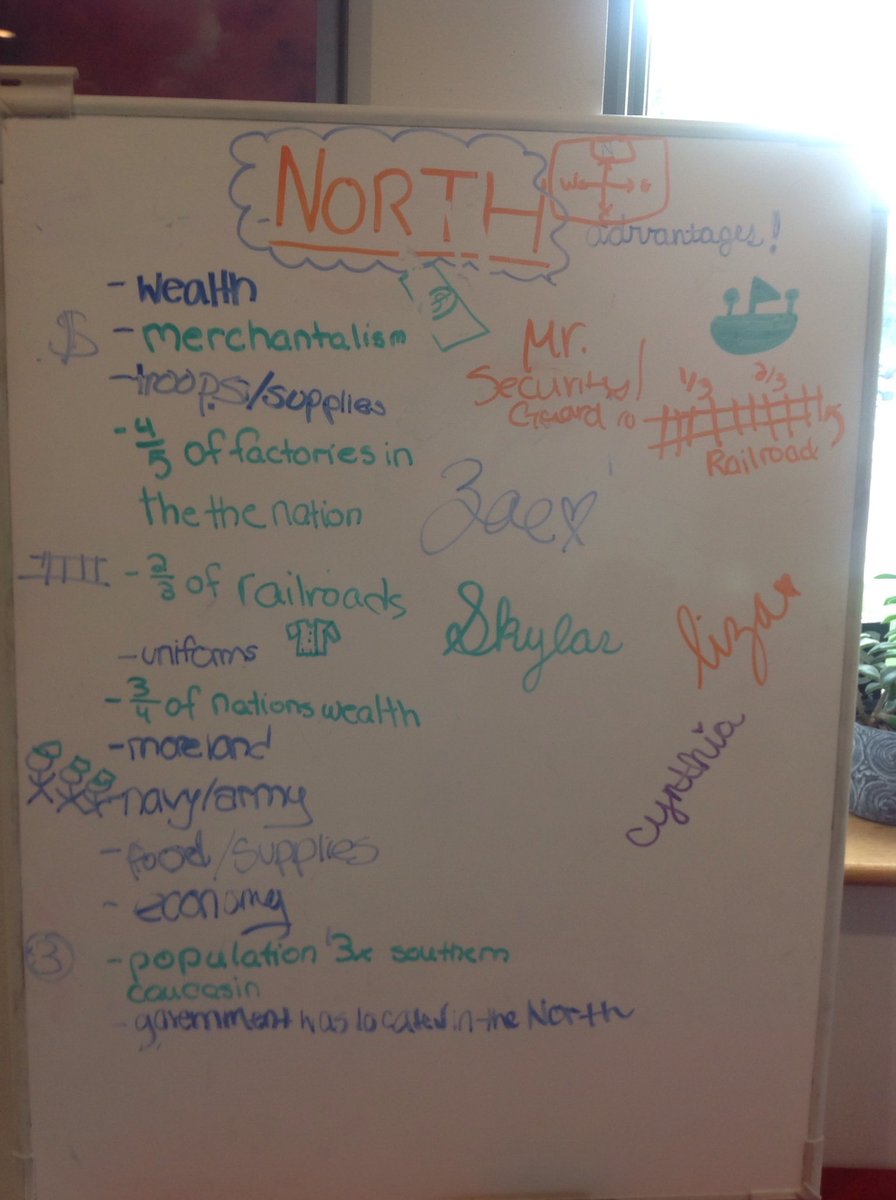 NORTH
N
W E
advantages!
- wealth
$ - merchantalism
- troops/supplies
- 4/5 of factories in
the the nation
- 2/3 of railroads
- uniforms
- 3/4 of nations wealth
- more land
- navy/army
- food/supplies
- economy
3 - population 3x southern
caucasin
- government was located in the North
Mr.
Security
1/3 2/3
Railroad
Zae
Skylar
liza
cynthia